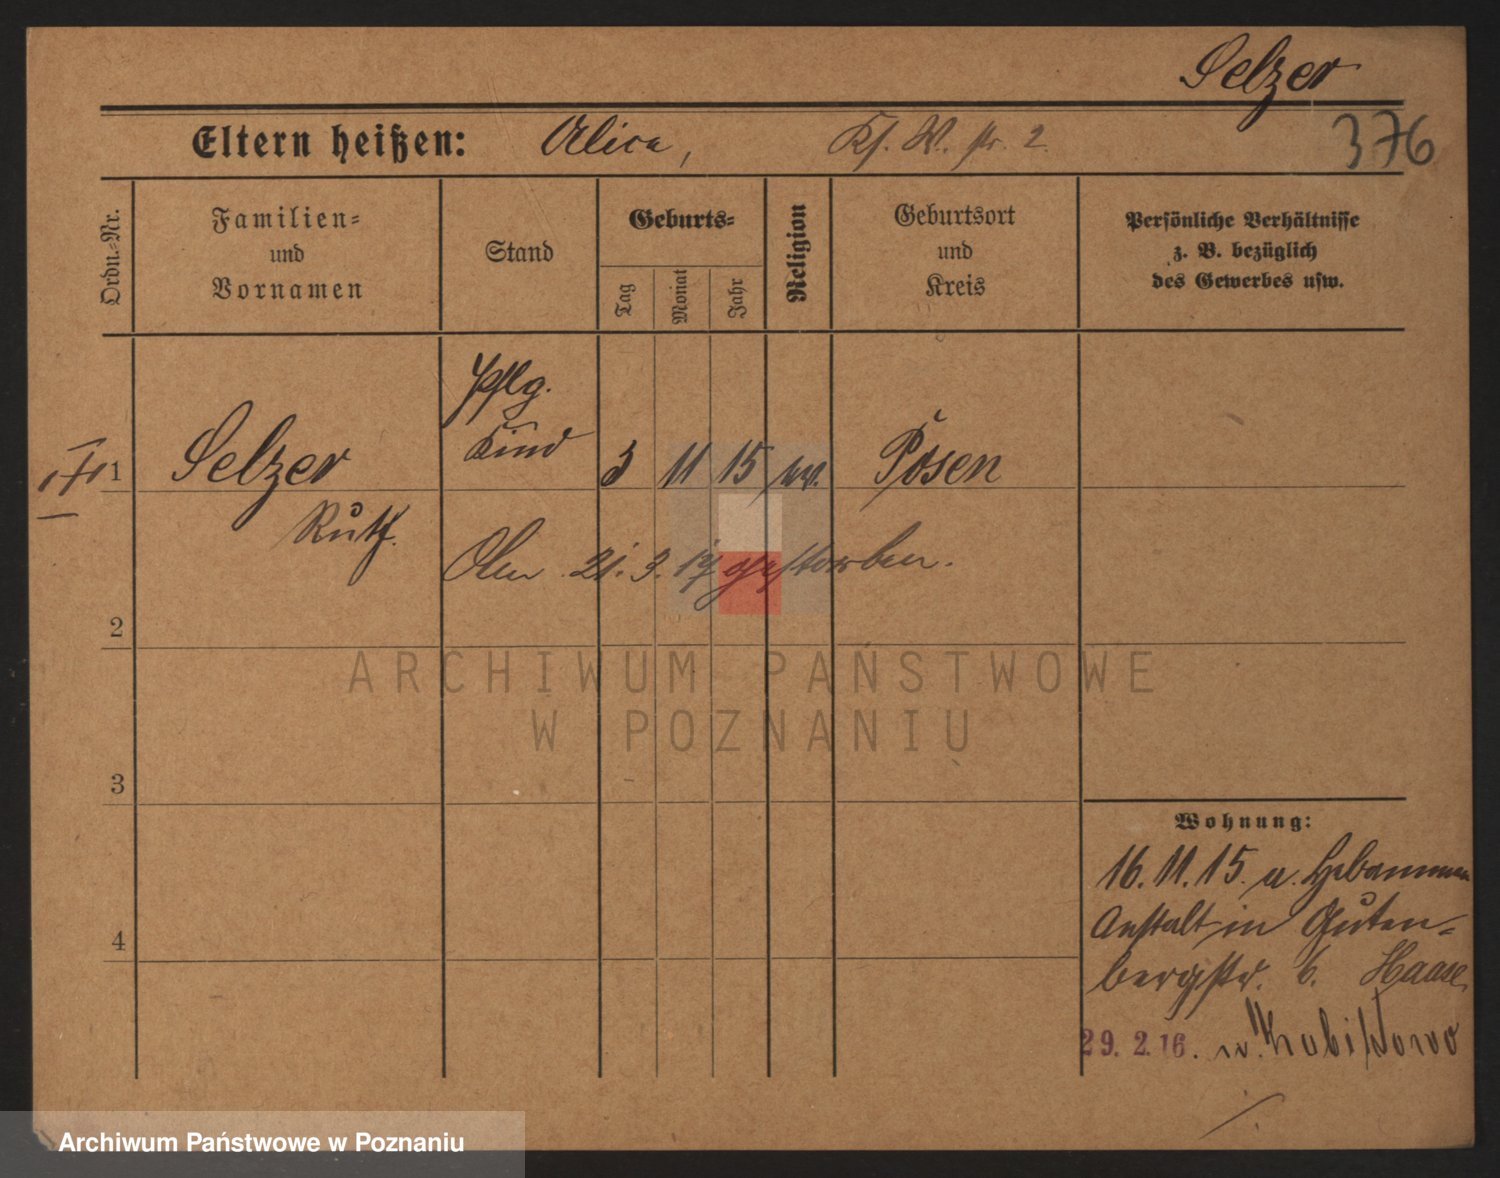 Selzer
Eltern heißen: Alice, Ks. W. str. 2.
376
Ordn.-Nr.
Familien-
und
Vornamen
Stand
Geburts-
Tag
Monat
Jahr
Religion
Geburtsort
und
Kreis
Persönliche Verhältnisse
z. B. bezüglich
des Gewerbes usw.
Pflg.
Kind
1 Selzer 3 11 15 Posen
Ruth.
Am 21. 3. 17 gestorben.
2
3
4
ARCHIWUM PAŃSTWOWE
W POZNANIU
Wohnung:
16. 11. 15. a. Hebammen
Anstalt in Guten-
bergstr. 6. Haase
29. 2. 16. n.
Archiwum Państwowe w Poznaniu